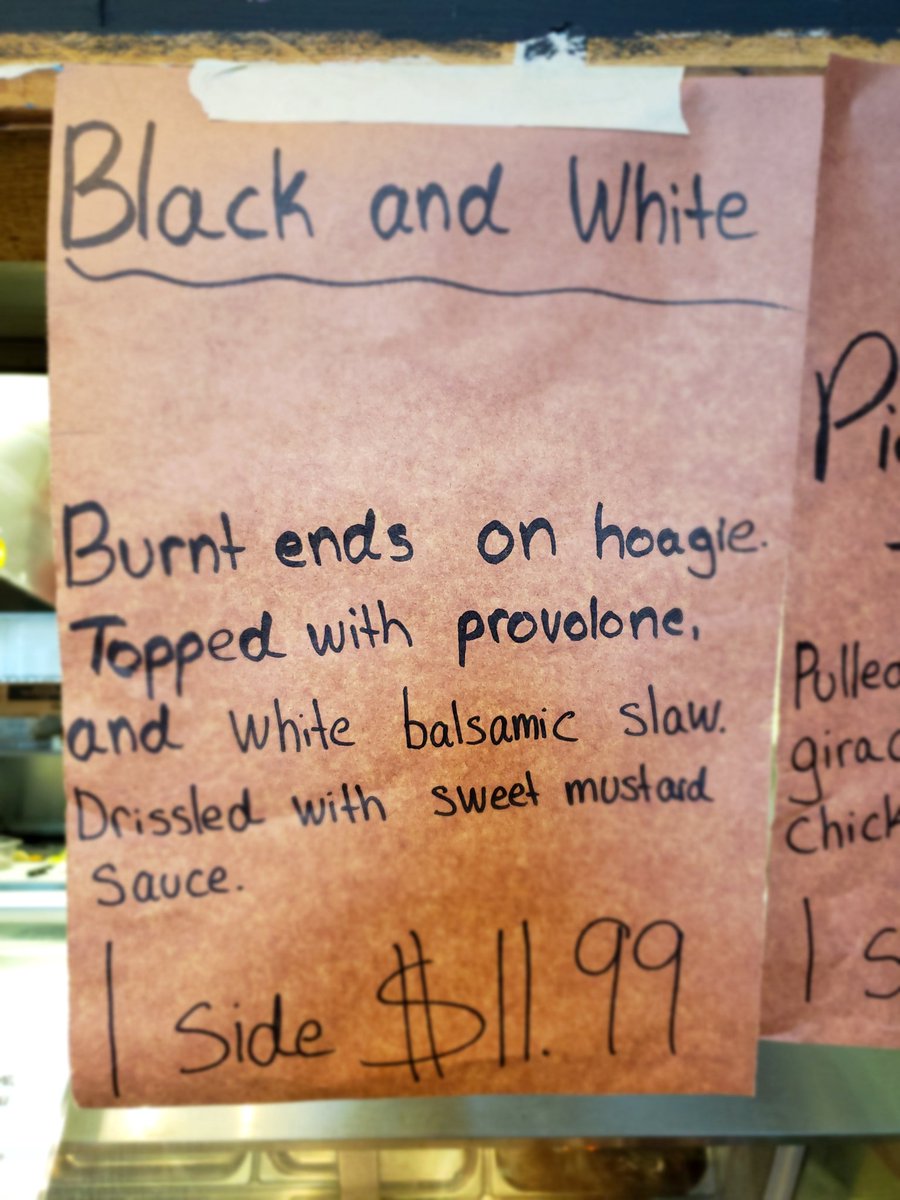 Black and White
Burnt ends on hoagie.
Topped with provolone,
and white balsamic slaw.
Drissled with sweet mustard
sauce.
1 Side $11.99
Pulled
Chick
1 S